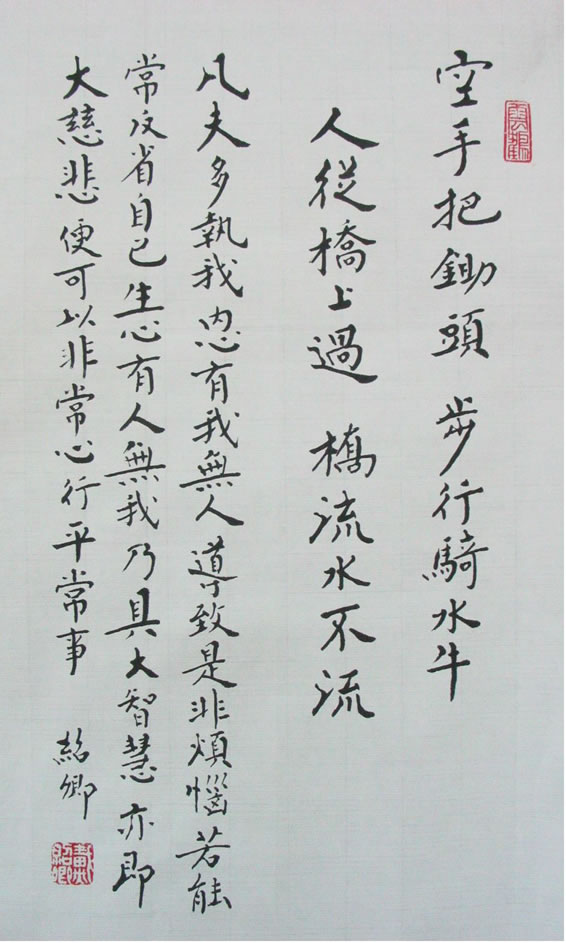 空手把鋤頭 步行騎水牛
人從橋上過 橋流水不流
凡夫多執我內心有我無人導致是非煩惱若能
常反省自己生心有人無我乃具大智慧亦即
大慈悲便可以非常心行平常事 紹卿